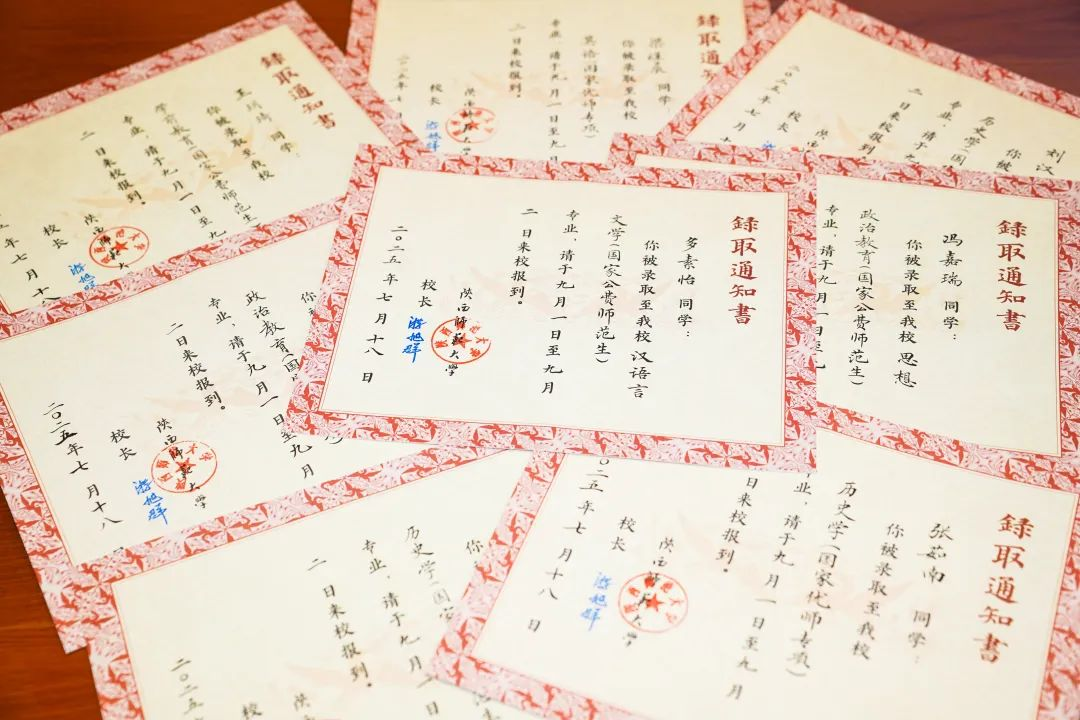 录取通知书
多素怡 同学：
你被录取至我校 汉语言
文学（国家公费师范生）
专业，请于九月一日至九月
二日来校报到。
陕西师范大学
校长
游旭群
二〇二五年七月十八日
录取通知书
冯嘉瑞 同学：
你被录取至我校 思想
政治教育（国家公费师范生）
专业，请于九月一日至九
录取通知书
张茹南 同学：
你被录取至我校
历史学（国家优师专项）
业，请于九月一日至九月
日来校报到。
陕西师范大学
校长
游旭群
〇二五年七月十八日
录取通知书
同学：
你被录取至我校
学前教育（国家公费师范生）
专业，请于九月一日至九
二日来校报到。
陕西师范大
校长
游旭群
五年七月十八
录取通知
同学
你被录取至我校
英语（国家优师专项）
专业，请于九月一日至九
二日来校报到。
陕西师范大学
校长
游旭群
二〇二五年七
刘汉
你被
历史学（国
专业，请于九月
二日来校报到
陕
校长
二〇二五年七月十
你
政治教育（国
专业，请于九月一日至九月
二日来校报到。
陕西师范大学
校长
游旭群
二〇二五年七月十八
你
历史学（国家
专业，请于九月一
二日来校报到。
陕
校
二〇二五